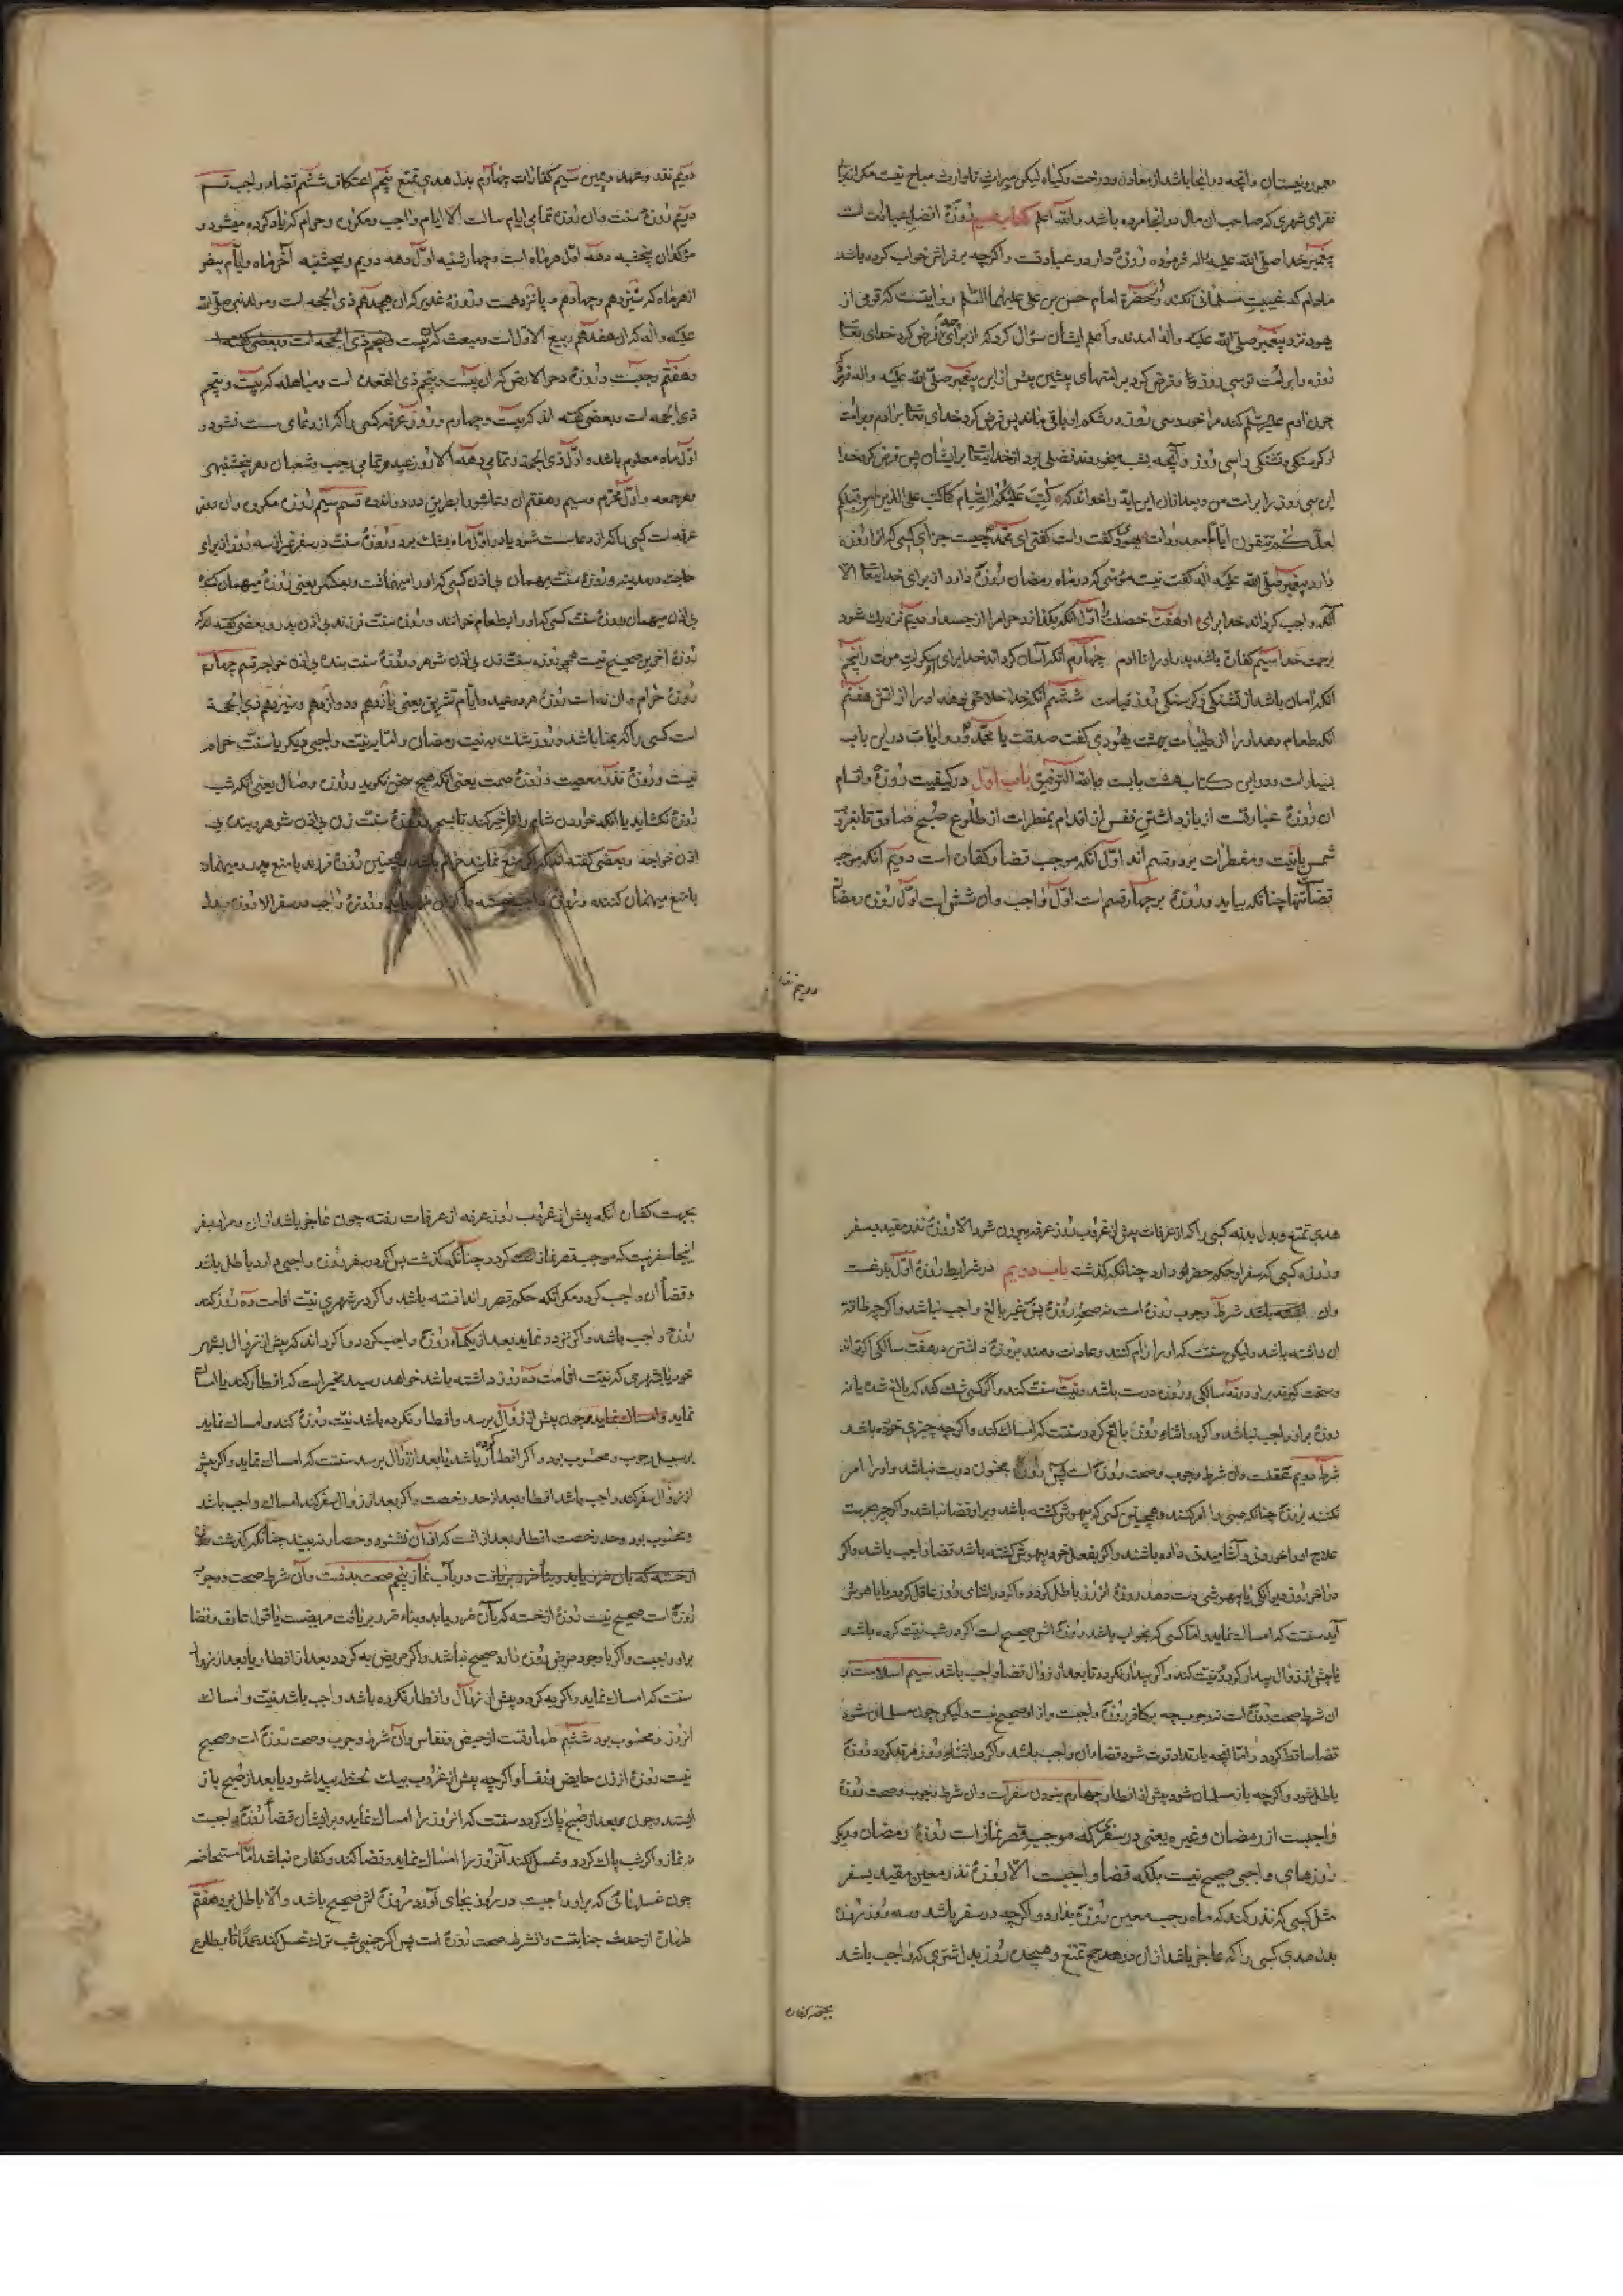 معمور و نیستان و آنچه در آنجا باشد از معادن و درخت و کیاه لیکن میراث تا وارث مباح نیست مکر آنرا
فقرای شهری که صاحب آن مال در آنجا مرده باشد والله اعلم کتاب روزهٔ افضل عبادات است
پیغمبر خدا صلی الله علیه واله فرموده روزه دار در عبادتست و اکرچه بر فراش خواب کرده باشد
مادام که غیبت مسلمانی نکند و بحضرة امام حسن بن علی علیهما السلم روایتست که قومی از
یهود نزد پیغمبر صلی الله علیه واله امدند و اعلم ایشان سؤال کرد که از برای چه فرض کرد خدای تعا
روزه را بر امت تو سی روز و فرض کرد بر امتهای پیشین پیش از این پیغمبر صلی الله علیه واله فرمود
چون ادم علیه السلم کندم را خورد سی روز در شکم او باقی ماند پس فرض کرد خدای تعا بر ادم و بر امت
او کرسنکی و تشنکی را سی روز و آنچه بشب میخوردند فضلی بود از خدایتعا بر ایشان پس فرض کرد خدا
این سی روز را بر امت من و بعد از آن این ایه را خواند که کتب علیکم الصیام کما کتب علی الذین من قبلکم
لعلکم تتقون ایاما معدودات یهودی کفت راست کفتی ای محمد چیست جزای کسی که انرا روزه
دارد پیغمبر صلی الله علیه واله کفت نیست مؤمنی که در ماه رمضان روزه دارد از برای خدایتعا الا
آنکه واجب کرداند خدا برای او هفت خصلت اول آنکه بکدازد حرام را از جسد او دویم نزدیک شود
برحمت خدا سیم کفاره باشد پدر او را تا ادم چهارم انکه آسان کرداند خدا برای او سکرات موت را پنجم
آنکه امان باشد از تشنکی و کرسنکی روز قیامت ششم آنکه خدا خلاصی بدهد او را از آتش هفتم
انکه طعام دهد او را از طیبات بهشت یهودی کفت صدقت یا محمد و روایات در این باب
بسیار است و در این کتاب هشت بابست وبالله التوفیق باب اول در کیفیت روزه و اقسام
ان روزه عبارتست از باز داشتن نفس از اقدام بمفطرات از طلوع صبح صادق تا غروب
شمس با نیت و مفطرات بر دو قسم اند اول آنکه موجب قضا و کفاره است دویم آنکه موجب
قضاست تنها چنانکه بیاید و روزه بر چهار قسم است اول واجب وان شش است اول روزه رمضان
دویم نذ
دویم نذر و عهد و یمین سیم کفارات چهارم بدل هدی تمتع پنجم اعتکاف ششم قضاء واجب قسم
دویم روزه سنت وان روزه تمامی ایام سالست الا ایام واجب و مکروه و حرام که یاد کرده میشود و
مؤکدان پنجشنبه دهه اول هر ماه است و چهارشنبه اول دهه دویم و پنجشنبه آخر ماه و ایام بیض
از هر ماه که سیزدهم و چهاردهم و پانزدهمست و روزه غدیر که ان هیجدهم ذی الحجه است و مولد نبی صلی الله
علیه واله که ان هفدهم ربیع الاول است و مبعث که بیست و پنجم ذی الحجه است و بعضی کفته
و هفتم رجبست و روزه دحو الارض که ان بیست و پنجم ذی القعده است و مباهله که بیست و پنجم
ذی الحجه است و بعضی کفته اند که بیست و چهارم و روزه عرفه کسی را که از دعای سست نشود و
اول ماه معلوم باشد و اول ذی الحجه و تمامی دهه الا روز عید و تمامی رجب و شعبان و هر پنجشنبهی
و هر جمعه و اول محرم و سیم و هفتم ان و عاشورا بطریق درد و اندوه قسم سیم روزه مکروه وان روز
عرفه است کسی را که از دعا سست شود یا در اول ماه بشک بود و روزه سنت در سفر غیر از سه روز از برای
حاجت در مدینه و روزه سنت میهمان بی اذن کسی که او را میهمانست و بعکس یعنی روزه میهمان کننده
بی اذن میهمان و روزه سنت کسی که او را بطعام خوانند و روزه سنت فرزند بی اذن پدر و بعضی کفته اند که
روزه اخرین صحیح نیست همچو روزه سنت زن بی اذن شوهر و روزه سنت بنده بی اذن خواجه قسم چهارم
روزه حرام وان نه است روزه هر دو عید و ایام تشریق یعنی یازدهم و دوازدهم و سیزدهم ذی الحجه
است کسی را که بمنا باشد و روز شک به نیت رمضان و اما بر نیت واجبی دیکر یا سنت حرام
نیست و روزهٔ نذر معصیت و روزهٔ صمت یعنی آنکه هیچ سخن نکوید و روزه وصال یعنی آنکه شب
روزه نکشاید یا آنکه خوردن شام را تاخیر کند تا بسحر و روزهٔ سنت زن بی اذن شوهر و بنده بی
اذن خواجه و بعضی کفته اند که اکر منع نمایند حرام باشد و همچنین روزه فرزند با منع پدر و میهمان
با منع میهمان کننده و روزه واجب در سفر الا روزه بدل
هدی تمتع و بدل بدنه کسی را که از عرفات پیش از غروب روز عرفه بیرون شود الا روزه نذر مقید بسفر
و روزه کسی که سفر او حکم حضر دارد چنانکه کذشت باب دویم در شرایط روزه اول بلوغست
وان شرط وجوب روزه است نه صحت روزه پس غیر بالغ واجب نباشد و اکرچه طاقة
ان داشته باشد ولیکن سنتست که او را الزام کنند و عادت دهند بروزه داشتن در هفت سالکی اکر تواند
و سخت کیرند بر او در نه سالکی و روزه درست باشد و نیت سنت کند و اکر کسی شک کند که بالغ شده یا نه
روزه بر او واجب نباشد و اکر در اثناء روزه بالغ کردد سنتست که امساک کند و اکرچه چیزی خورده باشد
شرط دویم عقلست وان شرط وجوب و صحت روزه است پس روزه مجنون درست نباشد و او را امر
نکنند بروزه چنانکه صبی را امر کنند و همچنین کسی که بیهوش کشته باشد و بر او قضا نباشد و اکرچه بجهت
علاج او را خوردنی و آشامیدنی داده باشند و اکر بفعل خود بیهوش کشته باشد قضا واجب باشد و اکر
در آخر روز دیوانکی یا بیهوشی دست دهد روزه انروز باطل کردد و اکر در اثنای روز عاقل کردد یا باهوش
آید سنتست که امساک نماید و اما کسی که بخواب باشد روزه اش صحیح است اکر در شب نیت کرده باشد
یا پیش از زوال بیدار کردد و نیت کند و اکر بیدار نکردد تا بعد از زوال قضا واجب باشد سیم اسلامست و
ان شرط صحت روزه است نه وجوب چه بر کافر روزه واجبست و از او صحیح نیست ولیکن چون مسلمان شود
قضا ساقط کردد و اما آنچه بارتداد فوت شود قضاء ان واجب باشد و اکر در اثناء روز مرتد کردد روزه
باطل شود و اکرچه باز مسلمان شود پیش از افطار چهارم نبودن سفرست وان شرط وجوب و صحت روزه
واجبست از رمضان و غیره یعنی در سفری که موجب قصر نماز است روزه رمضان و دیکر
روزهای واجبی صحیح نیست بلکه قضا واجبست الا روزه نذر معین مقید بسفر
مثل کسی که نذر کند که ماه رجب معین روزه بدارد و اکرچه در سفر باشد و سه روز روزه
بدل هدی کسی را که عاجز باشد از ان در حج تمتع و هیجده روز بدل اشتری که واجب باشد
بجهت کفاره
بجهت کفاره آنکه پیش از غروب روز عرفه از عرفات رفته چون عاجز باشد از ان و مراد بسفر
اینجا سفریست که موجب قصر نماز کردد چنانکه کذشت پس اکر در سفر روزه واجبی دارد باطل باشد
و قضاء ان واجب کردد مکر آنکه حکم قصر را ندانسته باشد و اکر در شهری نیت اقامت ده روز کند
روزه واجب باشد و اکر تردد نماید بعد از یکماه روزه واجب کردد و اکر داند که پیش از زوال بشهر
خود یا بشهری که نیت اقامت ده روز داشته باشد خواهد رسید مخیر است که افطار کند یا امساک
نماید و چون پیش از زوال برسد و افطار نکرده باشد نیت روزه کند و امساک نماید
بر سبیل وجوب و محسوب بود و اکر افطار کرده باشد یا بعد از زوال برسد سنتست که امساک نماید و اکر پیش
از زوال سفر کند واجب باشد افطار بعد از حد رخصت و اکر بعد از زوال سفر کند امساک واجب باشد
و محسوب بود و حد رخصت افطار بعد از انست که اذان نشنود و حصار نبیند چنانکه کذشت
در باب نماز پنجم صحت بدنست وان شرط صحت و وجوب
روزه است صحیح نیست روزه از خسته که بآن ضرر یابد و بناء ضرر بر یافت مریضست یا قول عارف و قضا
بر او واجبست و اکر با وجود مرض روزه دارد صحیح نباشد و اکر مریض به کردد بعد از افطار یا بعد از زوال
سنتست که امساک نماید و اکر به کردد پیش از زوال و افطار نکرده باشد واجب باشد نیت و امساک
انروز و محسوب بود ششم طهارتست از حیض و نفاس وان شرط وجوب و صحت روزه است و صحیح
نیست روزه از زن حایض و نفسا و اکرچه پیش از غروب بیک لحظه پیدا شود یا بعد از صبح باز
ایستد و چون بعد از صبح پاک کردد سنتست که انروز را امساک نماید و بر ایشان قضاء روزه واجبست
نه نماز و اکر شب پاک کردد و غسل نکند آنروز را امساک نماید و قضا کند و کفاره نباشد اما مستحاضه
چون غسلهائی که بر او واجبست در روز بجای آورد روزه اش صحیح باشد والا باطل بود هفتم
طهارة از حدث جنابتست وان شرط صحت روزه است پس اکر جنبی شب ترک غسل کند عمدا تا بطلوع